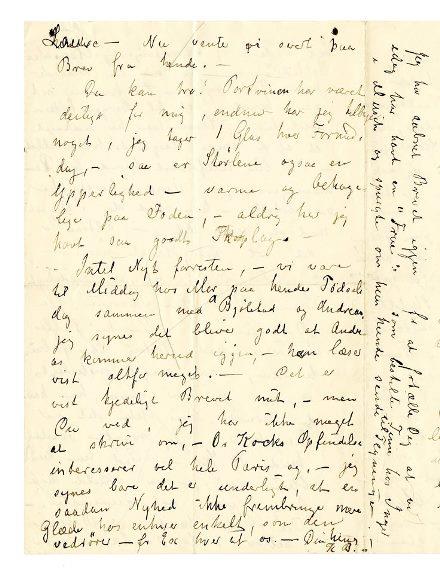 Louvre — Nu vente vi svert paa
Brev fra hende. —
Du kan tro! Portvinen har været
deiligt for mig, endnu har jeg
noget, jeg tager 1 Glas hver Formid
dag, — saa er Støvlene ogsaa en
Ypperlighed — varme og behage
lige paa Foden, — aldrig har jeg
havt saa godt
— Intet Nyt forresten, — vi vare
til Middag hos Mor paa hendes Fødsels
dag sammen med Bjølstad og Andreas
jeg synes det bliver godt at Andre
as kommer herud igjen, — han læser
vist altfor meget. — Det er
vist kjedeligt Brevet mit, — men
Du ved, jeg har ikke meget
at skrive om, — Dr Kocks Opfindelse
interesserer vel hele Paris og, — jeg
synes bare det er underligt, at en
saadan Nyhed ikke frembringer mere
Glæde hos enhver enkelt, som den
vedrører — for Ex hver af os. — Din
Jeg har aabnet Brevet igjen for at fortælle Dig at vi
idag har havt en "Frue", som
og spurgte om hun kunde